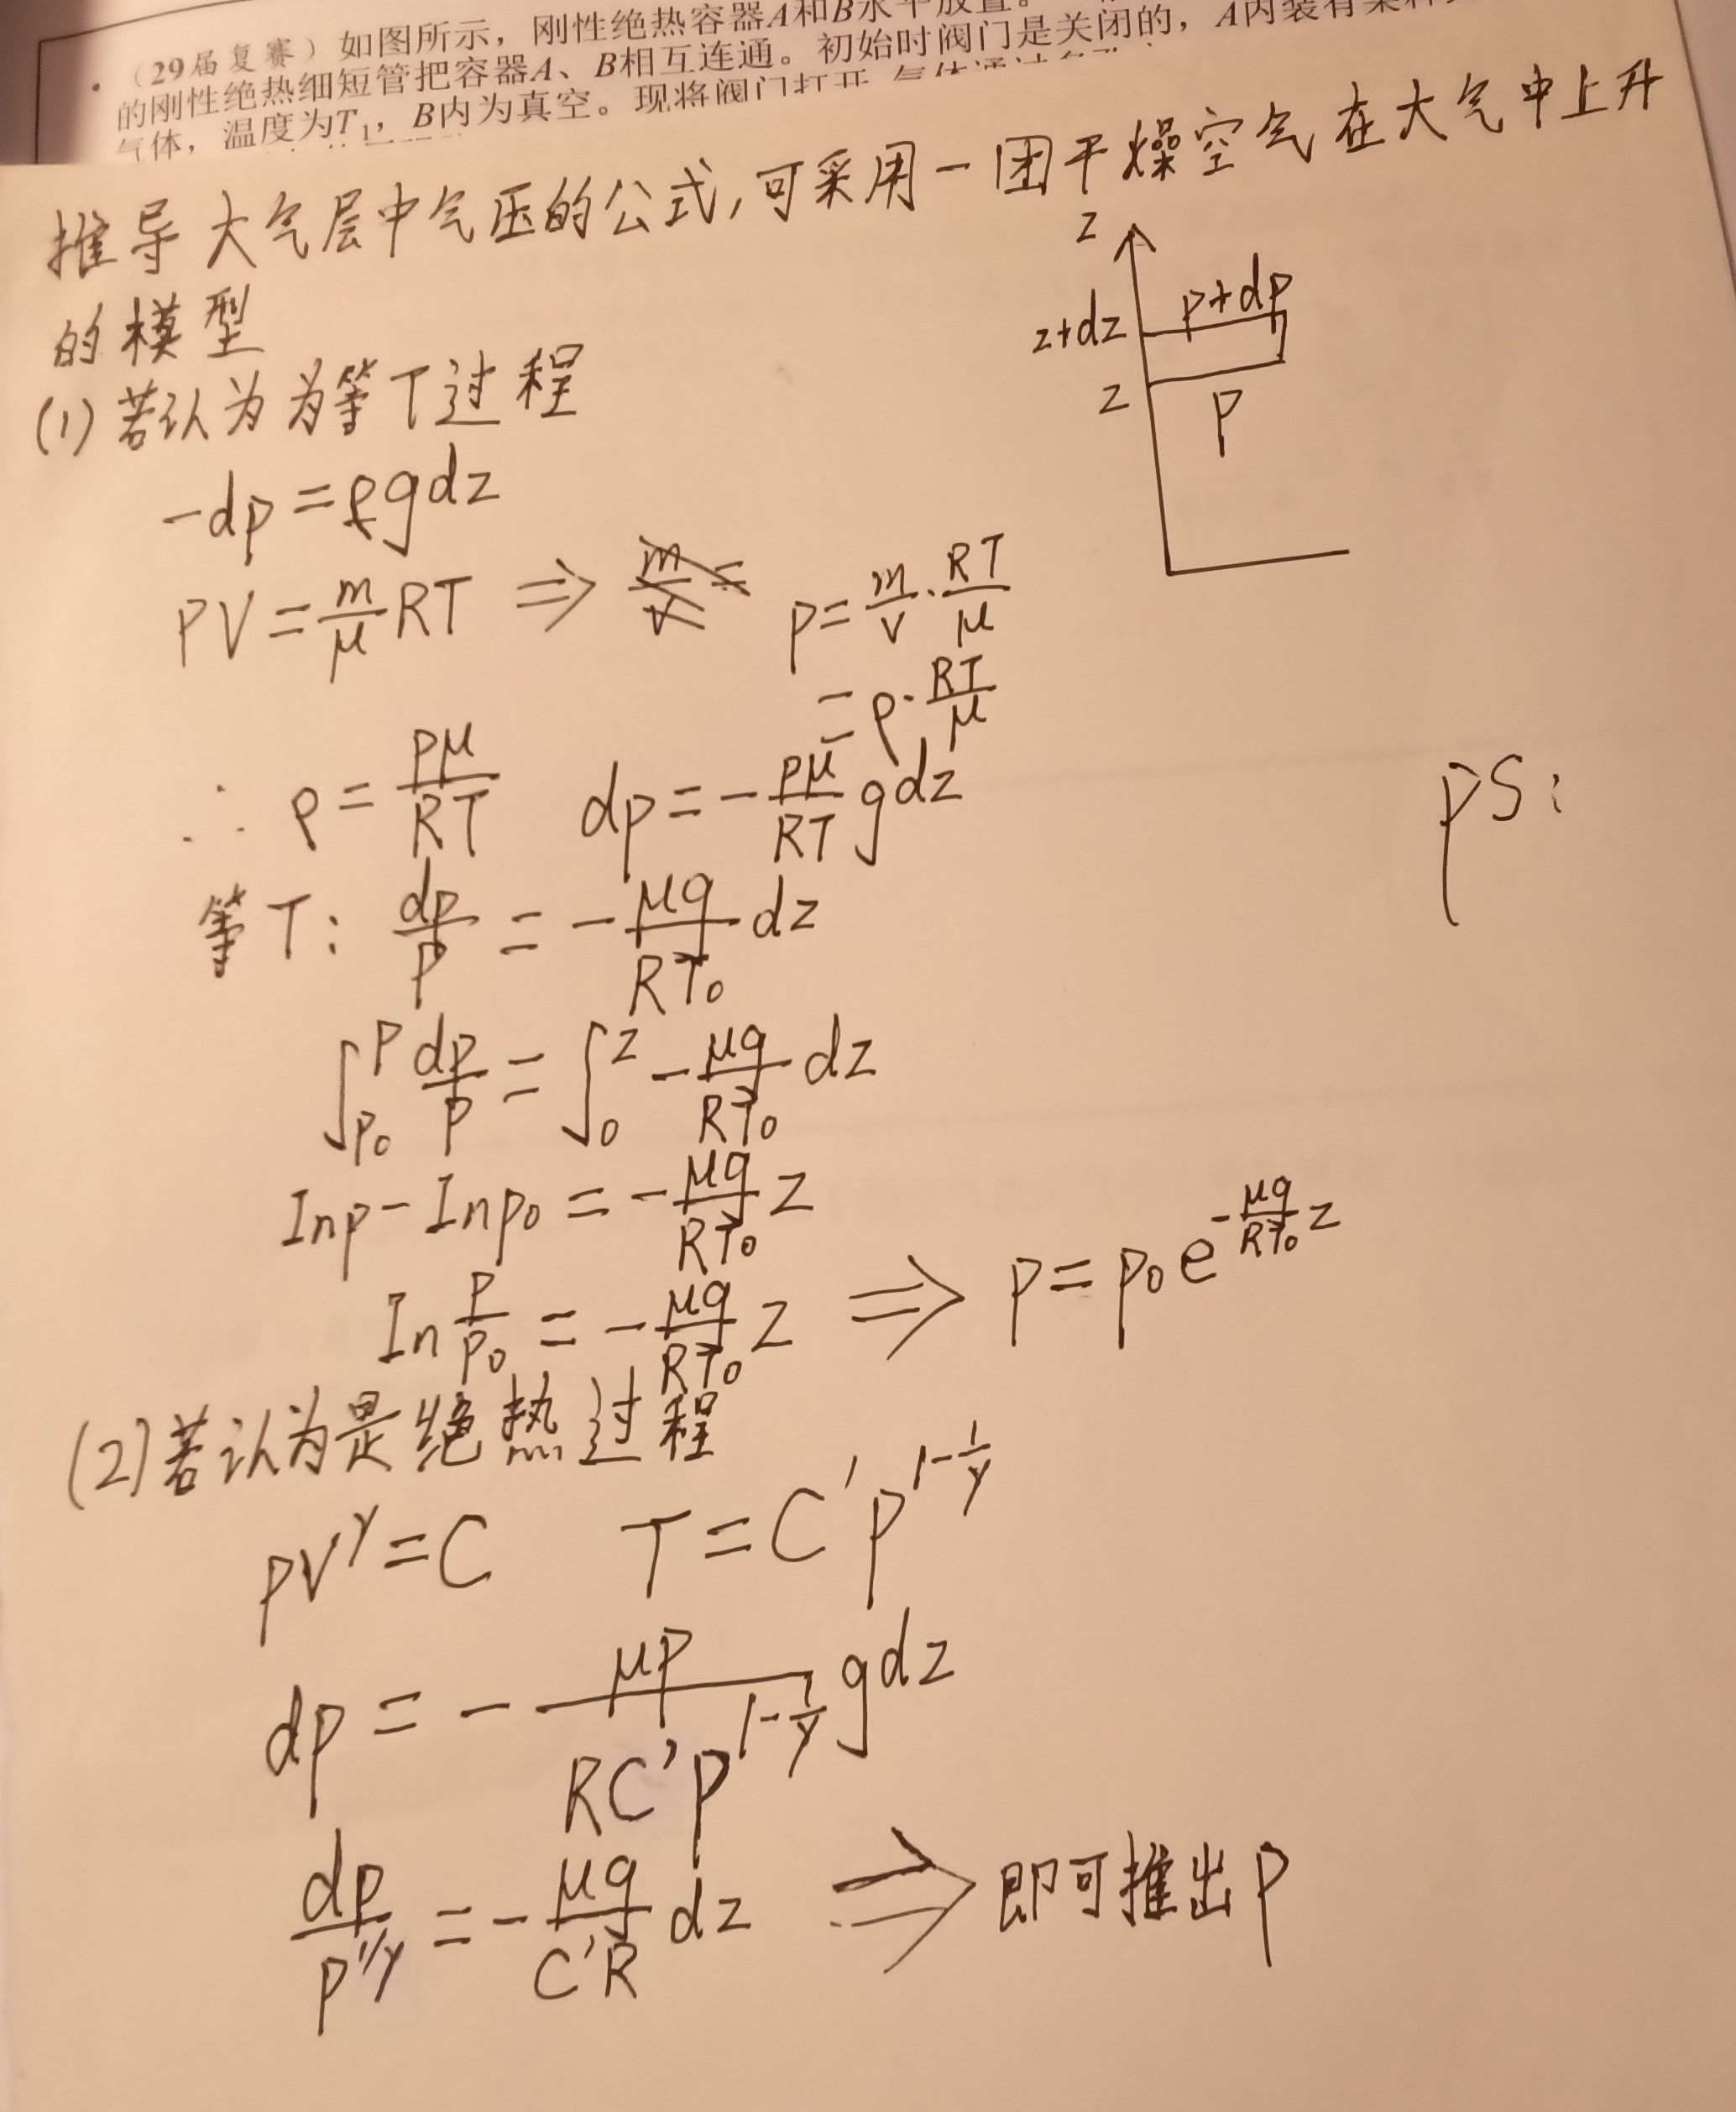 (29届复赛)如图所示，刚性绝热容器A和B水平放置。
的刚性绝热细短管把容器A、B相互连通。初始时阀门是关闭的，A内装有某种
气体，温度为T₁，B内为真空。现将阀门打开，气体通过
推导大气层中气压的公式,可采用一团干燥空气在大气中上升
的模型
z
z+dz p+dp
z p
(1)若认为为等T过程
-dp=ρgdz
PV=m/μ RT ⇒ p=m/v·RT/μ
=ρ·RT/μ
∴ ρ=pμ/RT dp=-pμ/RT gdz
ps:
等T: dp/p=-μg/RT₀ dz
∫_{p₀}^{p} dp/p=∫_0^z -μg/RT₀ dz
Inp-Inp₀=-μg/RT₀ z
In p/p₀=-μg/RT₀ z ⇒ p=p₀e^{-μg/RT₀ z}
(2)若认为是绝热过程
pV^γ=C T=C'p^{1-1/γ}
dp=-μp/RC'p^{1-1/γ} gdz
dp/p^{1/γ}=-μg/C'R dz ⇒ 即可推出p